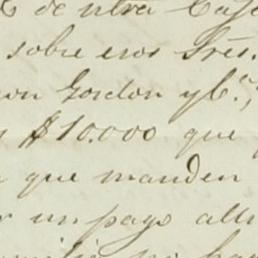 de ntra Casa
sobre esos Sres.
on Gordon y Ca.,
$10.000 que
que manden
un pago alli